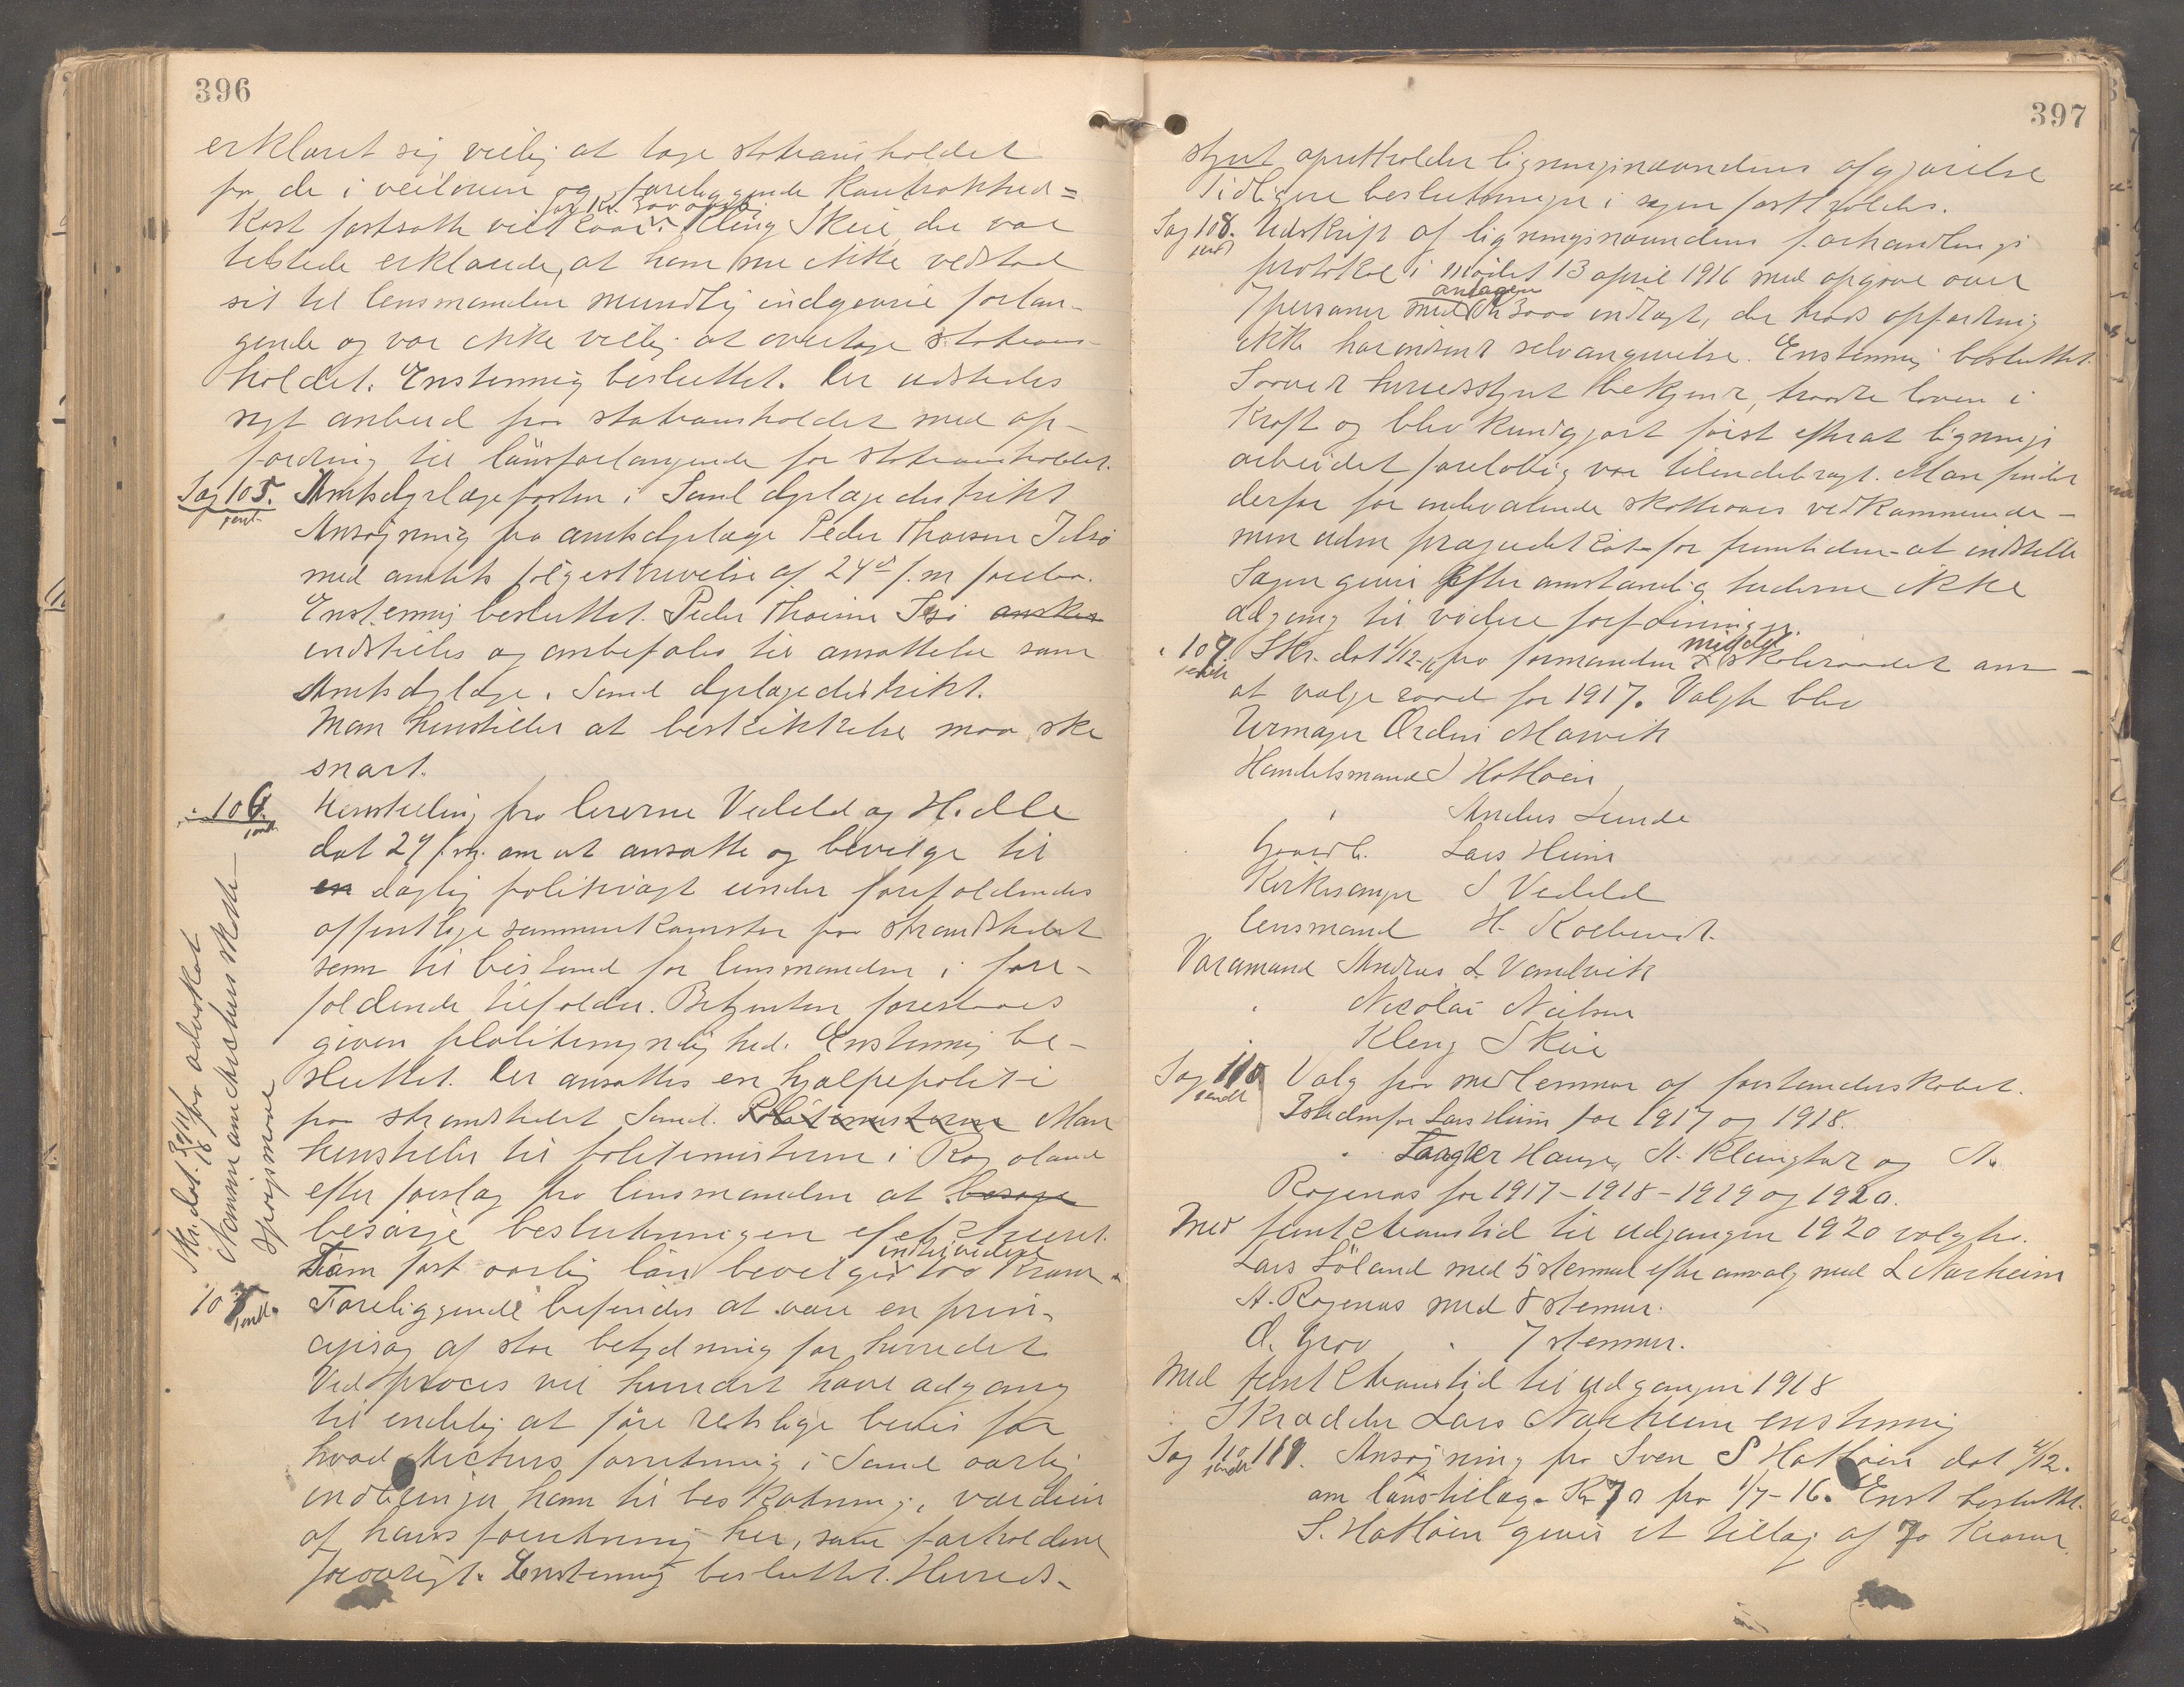 396
erklæret sig villig at tage skydsholdet
for de i veiloven og foreliggende
for kr. 300 aarlig
fastsatte vilkaar. Kleng Skeie der var
tilstede erklærede, at han nu ikke vedstod
sit til lensmanden mundtlig indgivne forlan-
gende og var ikke villig at overtage stations-
holdet. Enstemmig besluttet. Der udstedes
nyt anbud paa stationsholdet med op-
fordring til lønsforlangende for stationsholdet.
Sag 105. Amtsdyrlægeposten i Sand dyrlægedistrikt
sendt
Ansøgning fra amtsdyrlæge Peder Thorsen
med amtets følgeskrivelse af 24de f.m. forelaa.
Enstemmig besluttet. Peder Thorsen
indstilles og anbefales til ansættelse som
Amtsdyrlæge i Sand dyrlægedistrikt.
Man henstiller at beskikkelse maa ske
snart.
" 106. Henstilling fra lærerne Vedeld og Hidle
sendt
dat 29 f.m. om at ansætte og bevilge til
en daglig politivagt under forefaldende
offentlige sammenkomster paa strandstedet
som til bistand for lensmanden i fore-
faldende tilfælder. Betjenten forestaaes
given politimyndighed. Enstemmig be-
sluttet. Der ansættes en hjælpepoliti
paa strandstedet Sand. Politimesteren Man
henstiller til politimesteren i Rogaland
efter forslag fra lensmanden at besørge
besørge beslutningen effektueret.
Som fast aarlig løn bevilges indtilvidere 100 Kroner.
Skr. dat. 30/11 16 fra advokat
skatte
spørgsmaal
107. Foreliggende befindes at være en prin-
sendt.
cipsag af stor betydning for herredet
Ved proces vil herredet have adgang
til endelig at føre retslige bevis for
hvad Michens forretning i Sand aarlig
indbringer ham til beskatning, værdien
af hans forretning her, samt forholdene
forøvrigt. Enstemmig besluttet. Herreds-
397
styret opretholder ligningsnævndens afgjørelse
Tidligere beslutninger i sagen fastholdes.
Sag 108. Udskrift af ligningsnævndens forhandlings
sendt
protokol i mødet 13 april 1916 med opgave over
antagen
7 personer med Kr 3000 indtægt, der trods opfordring
ikke har indsendt selvangivelse. Enstemmig besluttet.
Saavidt herredsstyret bekjendt, traadte loven i
Kraft og blev kundgjort først efterat lignings
arbeidet foreløbig var tilendebragt. Man finder
derfor for indeværende skatteaars vedkommende -
men uden præjudikat for fremtiden - at indstille
Sagen giver efter omstændighederne ikke
adgang til videre forføininger.
" 109 Skr. dat 1/12-16 fra formanden i skoleraadet om
sendt
at vælge raad for 1917. Valgte blev
Urmager Ørder Marvik
Handelsmand S Hatløen
" Andreas Lunde
Gaardb. Lars Heim
Kirkesanger S Vedeld
lensmand H. Kolbeinst.
Varamand Andreas L. Vandvik
" Nicolai Nielsen
" Kleng Skeie
Sag 110 Valg paa medlemmer af forstanderskabet.
sendt
Istedenfor Lars Heim for 1917 og 1918.
" Hansen, A. Kleingtvet og A.
Rogenæs for 1917-1918-1919 og 1920.
Med funktionstid til udgangen 1920 valgtes.
Lars Løland med 5 stemmer efter omvalg med L Narheim
A. Rogenæs med 8 stemmer.
O. Grov " 7 stemmer.
Med funktionstid til udgangen 1918
Skrædder Lars Narheim enstemmig
Sag 111. Ansøgning fra Sven S Hatløen dat 4/12.
sendt
om lønstillæg Kr 70 fra 1/7-16. Enst besluttet.
S. Hatløen gives et tillæg af 70 Kroner.